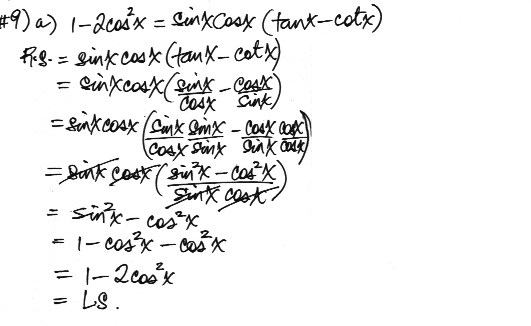 #9) a) 1-2cos²x = sinxcosx (tanx-cotx)
R.S. = sinxcosx (tanx-cotx)
= sinxcosx (sinx/cosx - cosx/sinx)
= sinxcosx (sinx sinx/cosx sinx - cosx cosx/sinx cosx)
= sinx cosx (sin²x - cos²x/sinx cosx)
= sin²x - cos²x
= 1-cos²x - cos²x
= 1-2cos²x
= LS.